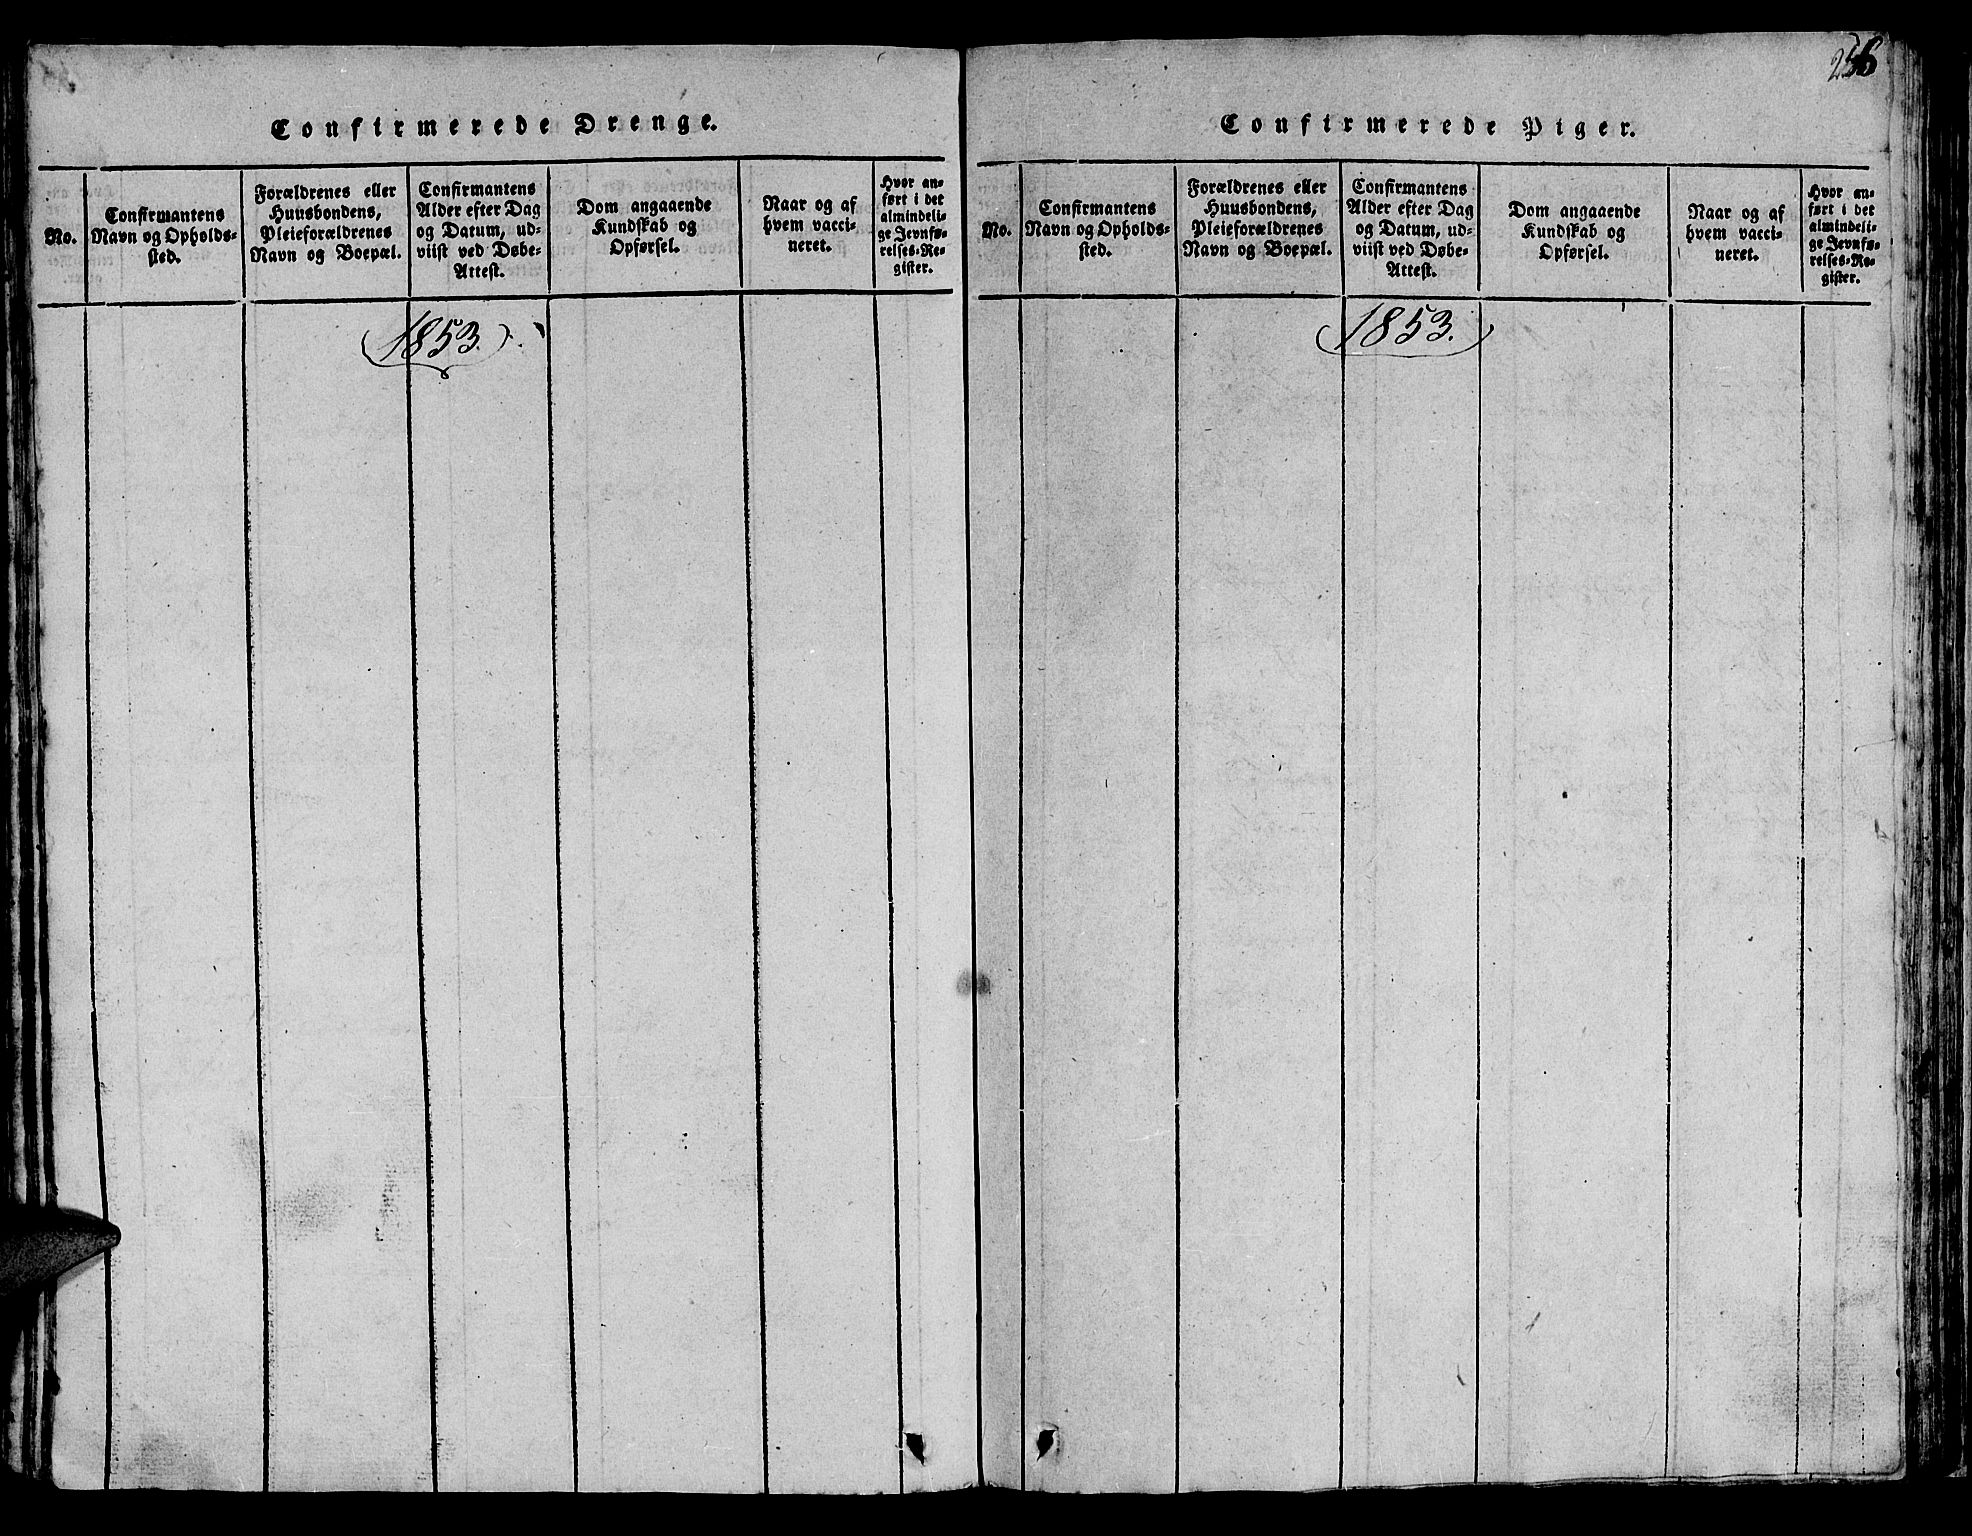 Confirmerede Drenge.
No.
Confirmantens
Navn og Opholds-
sted.
Forældrenes eller
Huusbondens,
Pleieforældrenes
Navn og Boepæl.
Confirmantens
Alder efter Dag
og Datum, ud-
viist ved Døbe-
Attest.
Dom angaaende
Kundskab og
Opførsel.
Naar og af
hvem vacci-
neret.
Hvor an-
ført i det
almindeli-
ge Jevnfø-
relses-Re-
gister.
1853.
256
Confirmerede Piger.
No.
Confirmantens
Navn og Opholds-
sted.
Forældrenes eller
Huusbondens,
Pleieforældrenes
Navn og Boepæl.
Confirmantens
Alder efter Dag
og Datum, ud-
viist ved Døbe-
Attest.
Dom angaaende
Kundskab og
Opførsel.
Naar og af
hvem vacci-
neret.
Hvor an-
ført i det
almindeli-
ge Jevnfø-
relses-Re-
gister.
1853.